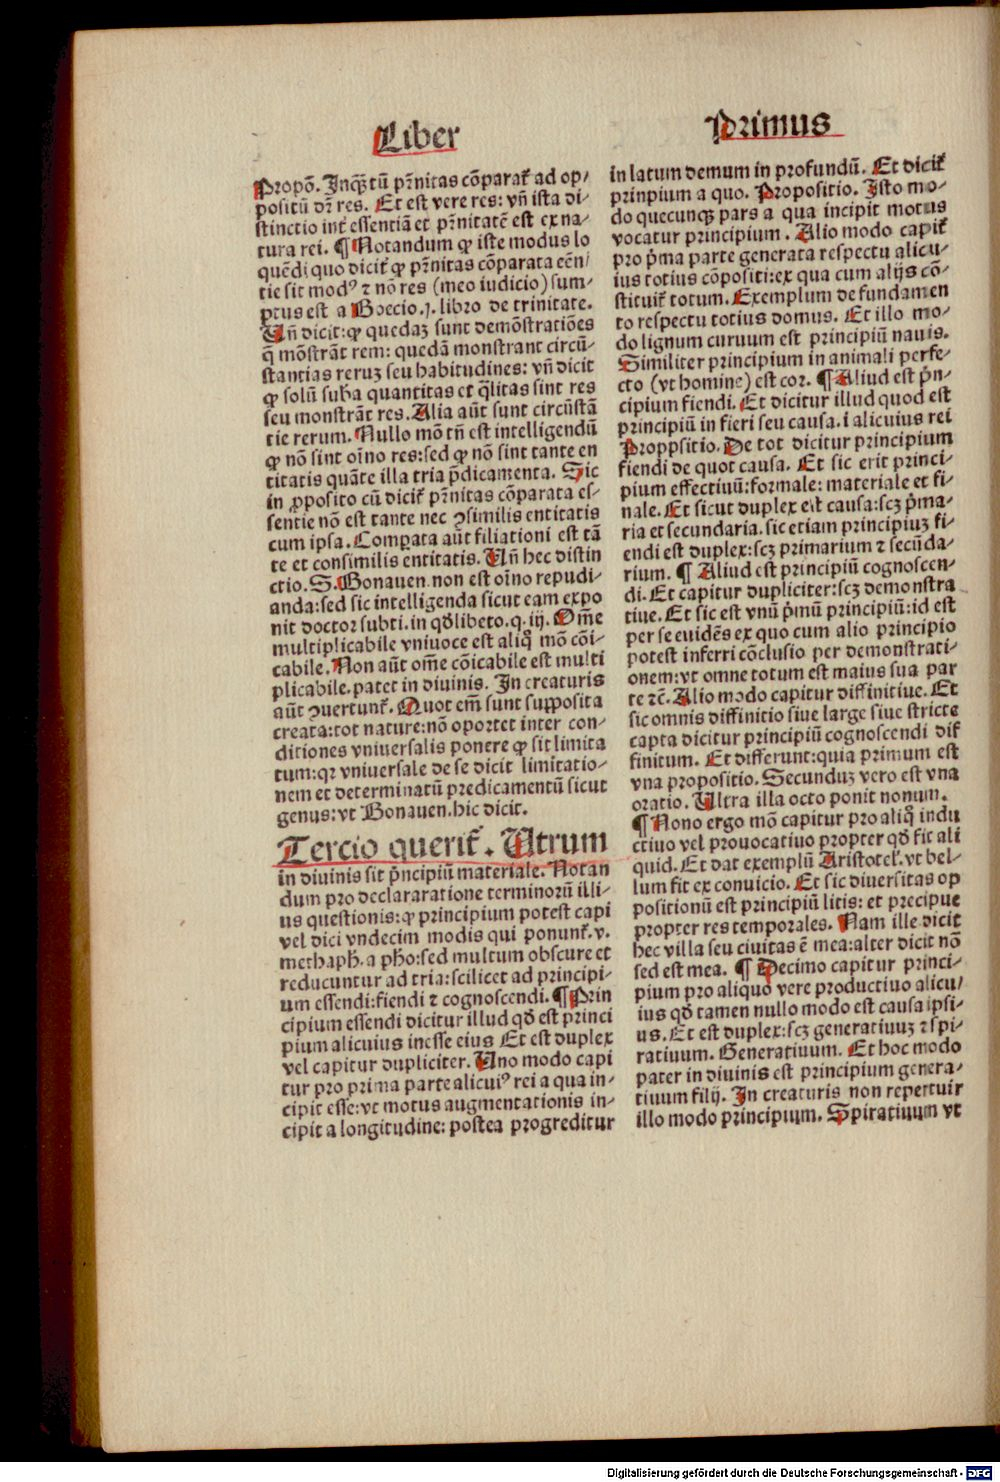 Liber
Primus
Propō. Inqꝫtū pr̄nitas cōparat᷑ ad op⸗
positū dr̄ res. Et est vere res: vn̄ ista di⸗
stinctio int̄ essentiā et pr̄nitatē est ex na⸗
tura rei. ¶ Notandum ꝙ iste modus lo
quēdi quo dicit᷑ ꝙ pr̄nitas cōparata eēn⸗
tie sit modꝰ ⁊ nō res (meo iudicio) sum⸗
ptus est a Boecio .j. libro de trinitate.
Vn̄ dicit: ꝙ quedaꝫ sunt demōstratiōes
q̄ mōstrāt rem: quedā monstrant circū⸗
stantias reruꝫ seu habitudines: vn̄ dicit
ꝙ solū suba quantitas et q̄litas sint res
seu monstrāt res. Alia aūt sunt circūstā
tie rerum. Nullo mō tn̄ est intelligendū
ꝙ nō sint oīno res: sed ꝙ nō sint tante en
titatis quāte illa tria p̄dicamenta. Sic
in ꝓposito cū dicit᷑ pr̄nitas cōparata es⸗
sentie nō est tante nec ꝯsimilis entitatis
cum ipsa. Comꝑata aūt filiationi est tā
te et consimilis entitatis. Vn̄ hec distin
ctio. S. Bonauen. non est oīno repudi⸗
anda: sed sic intelligenda sicut eam expo
nit doctor subti. in qd̄libeto. q. iij. Om̄e
multiplicabile vniuoce est aliq̄ mō cōi⸗
cabile. Non aūt om̄e cōicabile est multi
plicabile. patet in diuinis. In creaturis
aūt ꝯuertunt᷑. Quot em̄ sunt supposita
creata: tot nature: nō oportet inter con⸗
ditiones vniuersalis ponere ꝙ sit limita
tum: qꝛ vniuersale de se dicit limitatio⸗
nem et determinatū predicamentū sicut
genus: vt Bonauen. hic dicit.
Tercio querit᷑. Vtrum
in diuinis sit p̄ncipiū materiale. Notan
dum pro declararatione terminorū illi⸗
us questionis: ꝙ principium potest capi
vel dici vndecim modis qui ponunt᷑. v.
methaph. a pho: sed multum obscure et
reducuntur ad tria: scilicet ad principi⸗
um essendi: fiendi ⁊ cognoscendi. ¶ Prin
cipium essendi dicitur illud qd̄ est princi
pium alicuius inesse eius Et est duplex
vel capitur dupliciter. Vno modo capi
tur pro prima parte alicuiꝰ rei a qua in⸗
cipit esse: vt motus augmentationis in⸗
cipit a longitudine: postea progreditur
in latum demum in profundū. Et dicit᷑
prinpium a quo. Propositio. Isto mo⸗
do quecunqꝫ pars a qua incipit motus
vocatur principium. Alio modo capit᷑
pro p̄ma parte generata respectu alicu⸗
ius totius cōpositi: ex qua cum alijs cō⸗
stituit᷑ totum. Exemplum de fundamen
to respectu totius domus. Et illo mo⸗
do lignum curuum est principiū nauis.
Similiter principium in animali perfe⸗
cto (vt homine) est cor. ¶ Aliud est p̄n⸗
cipium fiendi. Et dicitur illud quod est
principiū in fieri seu causa. i alicuius rei
Proppsitio. De tot dicitur principium
fiendi de quot causa. Et sic erit princi⸗
pium effectiuū: formale: materiale et fi⸗
nale. Et sicut duplex est causa: scꝫ p̄ma⸗
ria et secundaria. sic etiam principiuꝫ fi⸗
endi est duplex: scꝫ primarium ⁊ secūda⸗
rium. ¶ Aliud est principiū cognoscen⸗
di. Et capitur dupliciter: scꝫ demonstra
tiue. Et sic est vnū p̄mū principiū: id est
per se euidēs ex quo cum alio principio
potest inferri cōclusio per demonstrati⸗
onem: vt omne totum est maius sua par
te ⁊c̄. Alio modo capitur diffinitiue. Et
sic omnis diffinitio siue large siue stricte
capta dicitur principiū cognoscendi dif
finitum. Et differunt: quia primum est
vna propositio. Secunduꝫ vero est vna
oratio. Vltra illa octo ponit nonum.
¶ Nono ergo mō capitur pro aliq̄ indu
ctiuo vel prouocatiuo propter qd̄ fit ali
quid. Et dat exemplū Aristotel᷑. vt bel⸗
lum fit ex conuicio. Et sic diuersitas op
positionū est principiū litis: et precipue
propter res temporales. Nam ille dicit
hec villa seu ciuitas ē mea: alter dicit nō
sed est mea. ¶ Decimo capitur princi⸗
pium pro aliquo vere productiuo alicu⸗
ius qd̄ tamen nullo modo est causa ipsi⸗
us. Et est duplex: scꝫ generatiuuꝫ ⁊ spi⸗
ratiuum. Generatiuum. Et hoc modo
pater in diuinis est principium genera⸗
tiuum filij. In creaturis non repertuir
illo modo principium. Spiratiuum vt
Digitalisierung gefördert durch die Deutsche Forschungsgemeinschaft - DFG